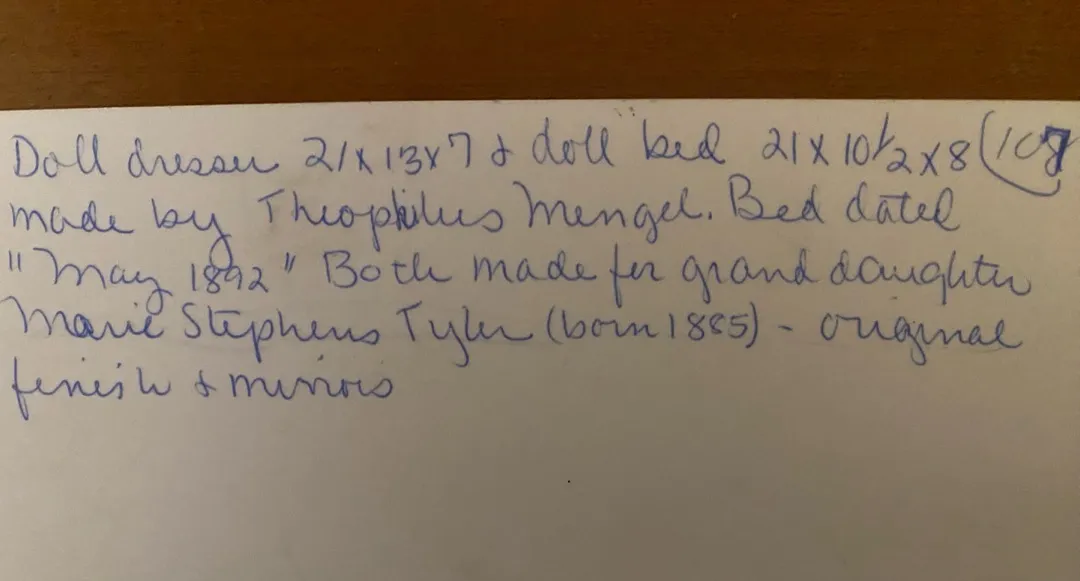 Doll dresser 21 x 13 x 7 & doll bed 21 x 10 1/2 x 8 (107
made by Theophilus Mengel. Bed dated
"May 1892" Both made for grand daughter
Marie Stephens Tyler (born 1885) - original
finish & mirrors